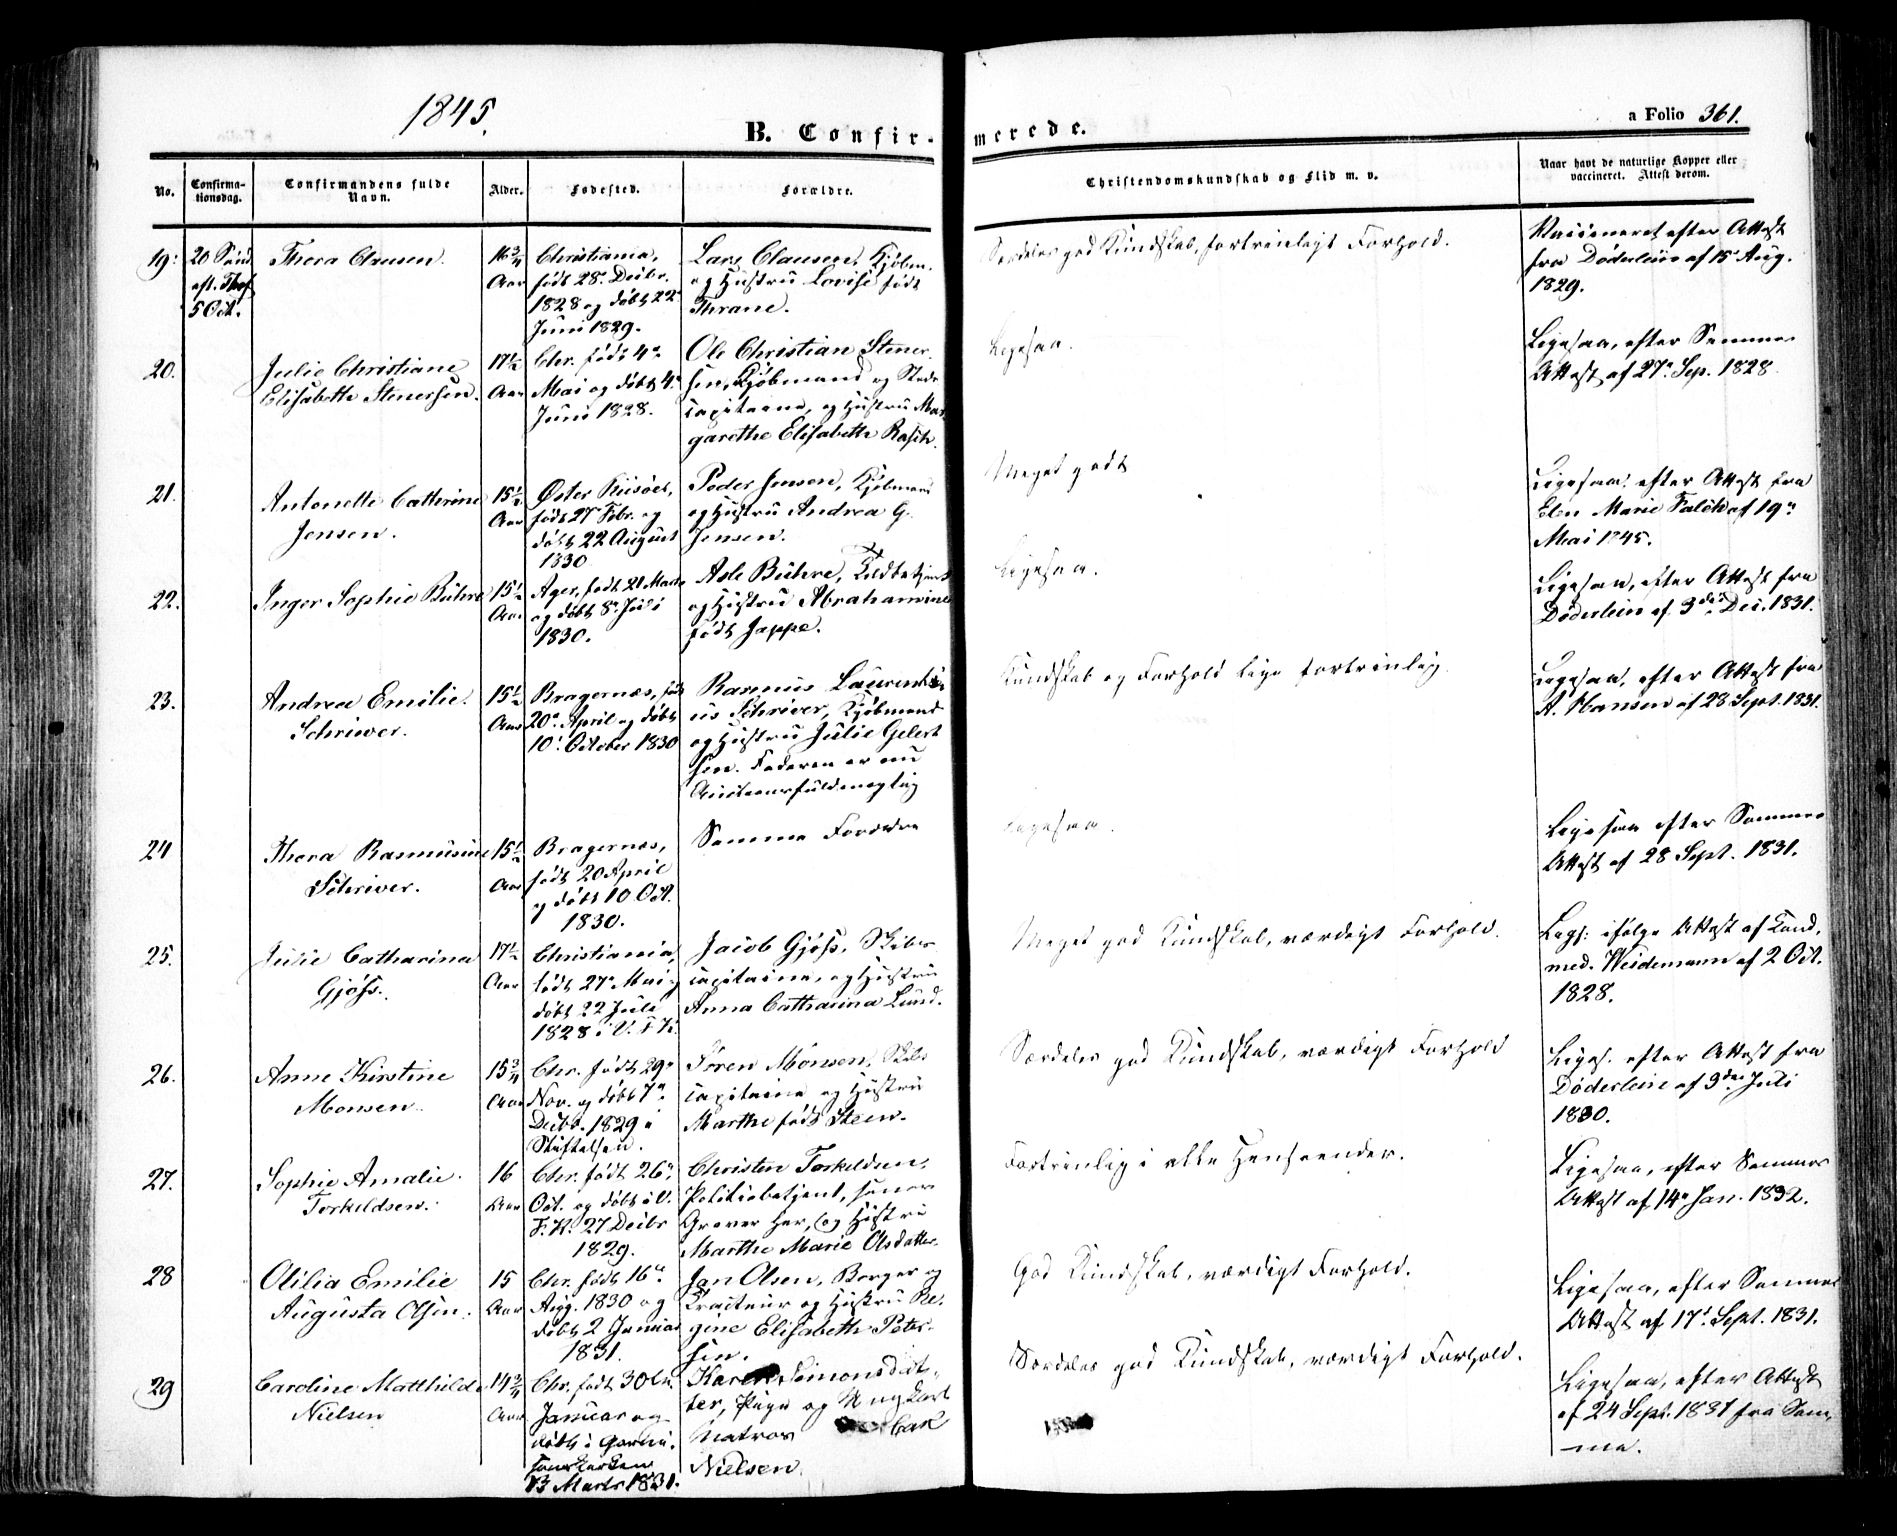 1845.
B. Confir-
merede.
a Folio 361.
No.
Confirma-
tionsdag.
Confirmandens fulde
Navn.
Alder.
Fødested.
Forældre.
Christendomskundskab og Flid m. v.
Naar havt de naturlige Kopper eller
vaccineret. Attest derom.
19.
20 Sønd
eft. Tref
5 Oct.
Thora Clausen.
16 3/4
Aar
Christiania,
født 28. Decbr.
1828 og døbt 22
Juni 1829.
Lars Clausen, Kjøbm.
og Hustru Lovise født
Thrane.
Særdeles god Kundskab, fortrinligt Forhold.
Vaccineret efter Attest
fra Døderlein af 15 Aug.
1829.
20.
Julie Christiane
Elisabeth Stenersen.
17 1/2
Aar
Chr. født 4de
Mai og døbt 4.
Juni 1828.
Ole Christian Stener-
sen, Kjøbmand og Stads
capitaine, og Hustru Mar
garethe Elisabeth Rasch.
Ligesaa.
Ligesaa, efter Sammes
Attest af 27. Sep. 1828.
21.
Antonette Cathrine
Jensen.
15 1/2
Aar
Øster Riisøer,
født 27 Febr. og
døbt 22 August
1830
Peder Jensen, Kjøbmand
og Hustru Andrea G.
Jensen.
Meget godt
Ligesaa, efter Attest fra
Elen Marie Falch af 19de
Mai 1845.
22.
Inger Sophie Bühre
15 1/2
Aar
Ager, født 21 Marts
og døbt 8. Juli
1830.
Asle Bühre, Toldbetjent
og Hustru Abrahamine
født Jappe.
Ligesaa.
Ligesaa, efter Attest fra
Døderlein af 3die Dec. 1831.
23.
Andrea Emilie
Schriwer.
15 1/2
Aar
Bragernæs, født
20. April og døbt
10. October 1830
Rasmus Laurenti-
us Schriver, Kjøbmand
og Hustru Julie Gelert
sen. Faderen er nu
Auctionsfuldmegtig
Kundskab og Forhold lige fortrinlig.
Ligesaa, efter Attest fra
A. Hansen af 28 Sept. 1831.
24
Thora Rasmusine
Schriver.
15 1/2
Aar
Bragernæs,
født 20 April
og døbt 10 Oct.
1830.
Samme Forældre
Ligesaa.
Ligesaa efter Sammes
Attest af 28 Sept. 1831.
25.
Julie Catharina
Gjöss.
17 1/2
Aar
Christiania,
født 27. Mai og
døbt 22 Juli
1828 i V. F. K.
Jacob Gjöss, Skibs
capitaine, og Hustru
Anna Catharina Lund.
Meget god Kundskab, værdigt Forhold.
Ligs: ifølge Attest af Cand.
med. Weidemann af 2 Oct.
1828.
26.
Anne Kirstine
Monsen.
15 3/4
Aar
Chr. født 29de
Nov. og døbt 7de
Decbr. 1829 i
Stiftelsen.
Søren Monsen, Skibs
capitaine og Hustru
Marthe født Steen.
Særdeles god Kundskab, værdigt Forhold
Liges. efter Attest fra
Døderlein af 9de Juli
1830.
27.
Sophie Amalie
Torkildsen.
16
Aar
Chr. født 26.
Oct. og døbt i V.
F. K. 27 Decbr
1829.
Christen Torkildsen,
Politiebetjent, senere
Graver her, og Hustru
Marthe Marie Olsdatter.
Fortrinlig i alle Henseender.
Ligesaa, efter Sammes
Attest af 14de Jan. 1832.
28
Otilia Emilie
Augusta Olsen.
15
Aar
Chr. født 16de
Aug. 1830 og
døbt 2 Januar
1831.
Jan Olsen, Borger og
Tracteur og Hustru Re-
gine Elisabeth Peter-
sen.
God Kundskab, værdigt Forhold.
Ligesaa, efter Sammes
Attest af 17. Sept. 1831.
29
Caroline Matthilde
Nielsen
14 3/4
Aar
Chr. født 30te
Januar og
døbt i Garni-
sonskirken
13 Marts 1831.
Karen Simonsdat-
ter, Pige og Ungkarl
Matros
Nielsen.
Særdeles god Kundskab, værdigt Forhold.
Ligesaa, efter Attest
af 24 Sept. 1831 fra Sam-
me.